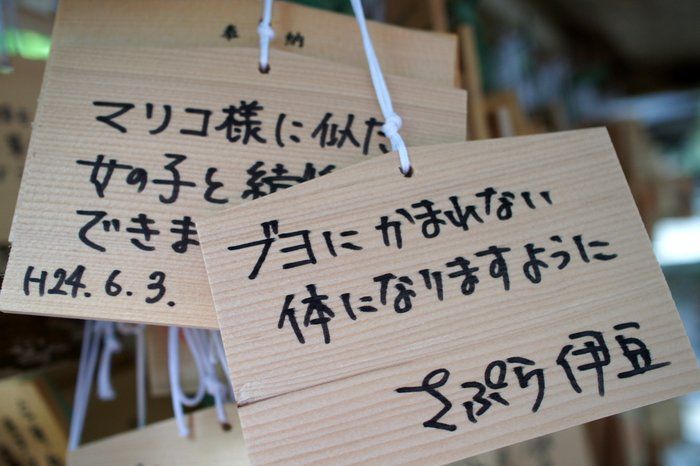 奉納
マリコ様に似た
女の子と結婚
できま
H24.6.3.
ブヨにかまれない
体になりますように
さぷら伊豆